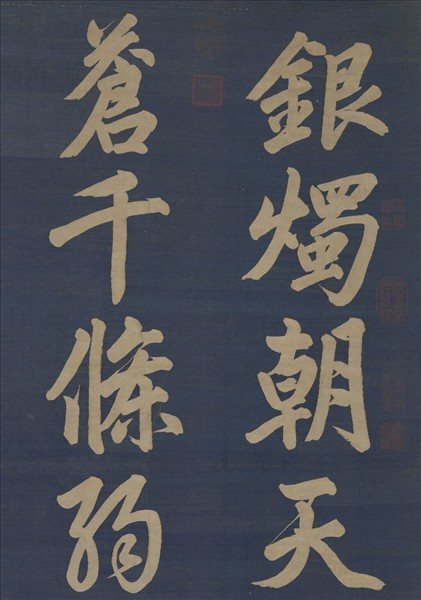 銀燭朝天
蒼千條弱